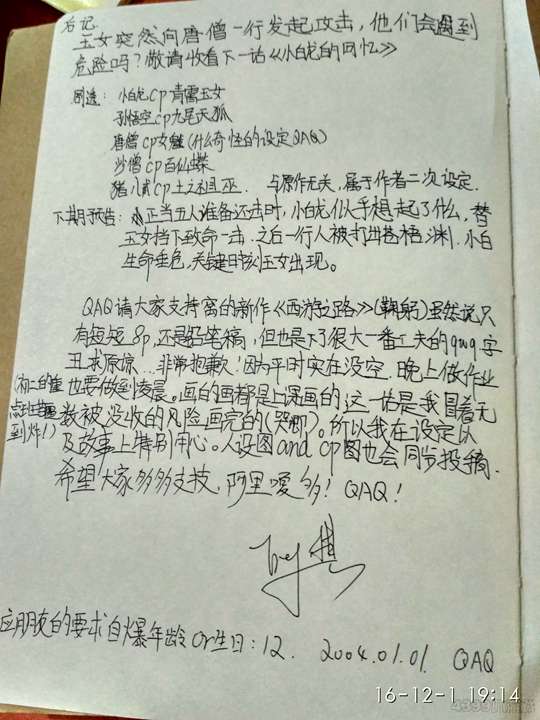 后记
玉女突然向唐僧一行发起攻击，他们会遇到
危险吗？敬请收看下一话《小白龙的回忆》
剧透：小白龙cp青霄玉女
孙悟空cp九尾天狐
唐僧cp女魃（什么奇怪的设定QAQ）
沙僧cp百仙蝶
猪八戒cp土之祖巫. 与原作无关，属于作者二次设定.
下期预告：正当五人准备还击时，小白龙似乎想起了什么，替
玉女挡下致命一击.之后一行人被打出苍梧渊.小白
生命垂危，关键时刻玉女出现。
QAQ请大家支持窝的新作《西游之路》（鞠躬）虽然说只
有短短8p，还是铅笔稿，但也是下了很大一番工夫的qwq字
丑求原谅...非常抱歉！因为平时实在没空，晚上做作业
也要做到凌晨。画的画都是上课画的 这一话是我冒着无
（初二的
到炸！）
数被没收的风险画完的（哭唧）。所以我在设定以
及故事上特别用心。人设图and cp图也会同步投稿.
希望大家多多支技，阿里嘎多！QAQ！
by
应朋友的要求自爆年龄or生日：12. 2004.01.01. QAQ
16-12-1 19:14